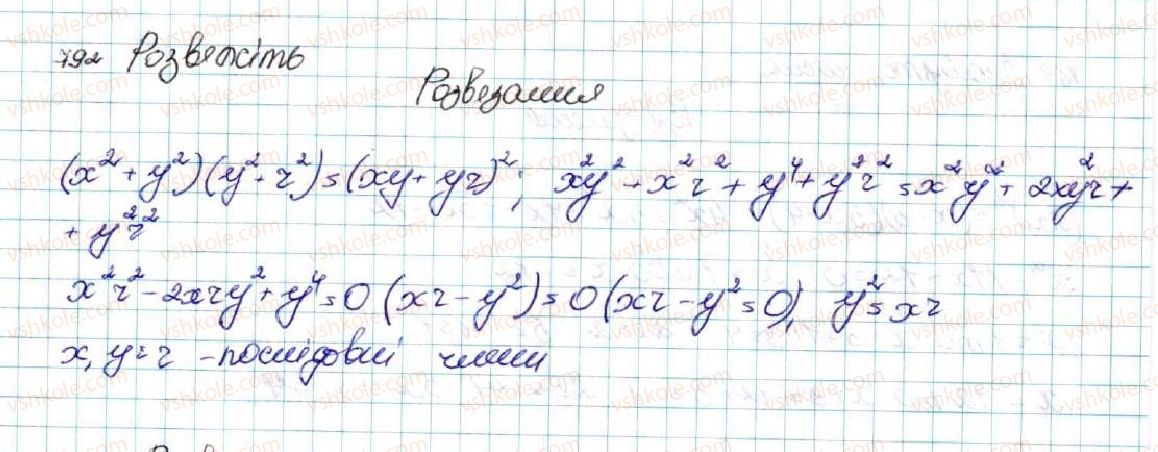 792 Розвяжіть
Розвязання
(x² + y²)(y² + z²) = (xy + yz)²; xy² + x²z² + y⁴ + y²z² = x²y² + 2xy²z +
+ y²z²
x²z² - 2xzy² + y⁴ = 0 (xz - y²) = 0 (xz - y² = 0), y² = xz
x, y = z - послідовні члени